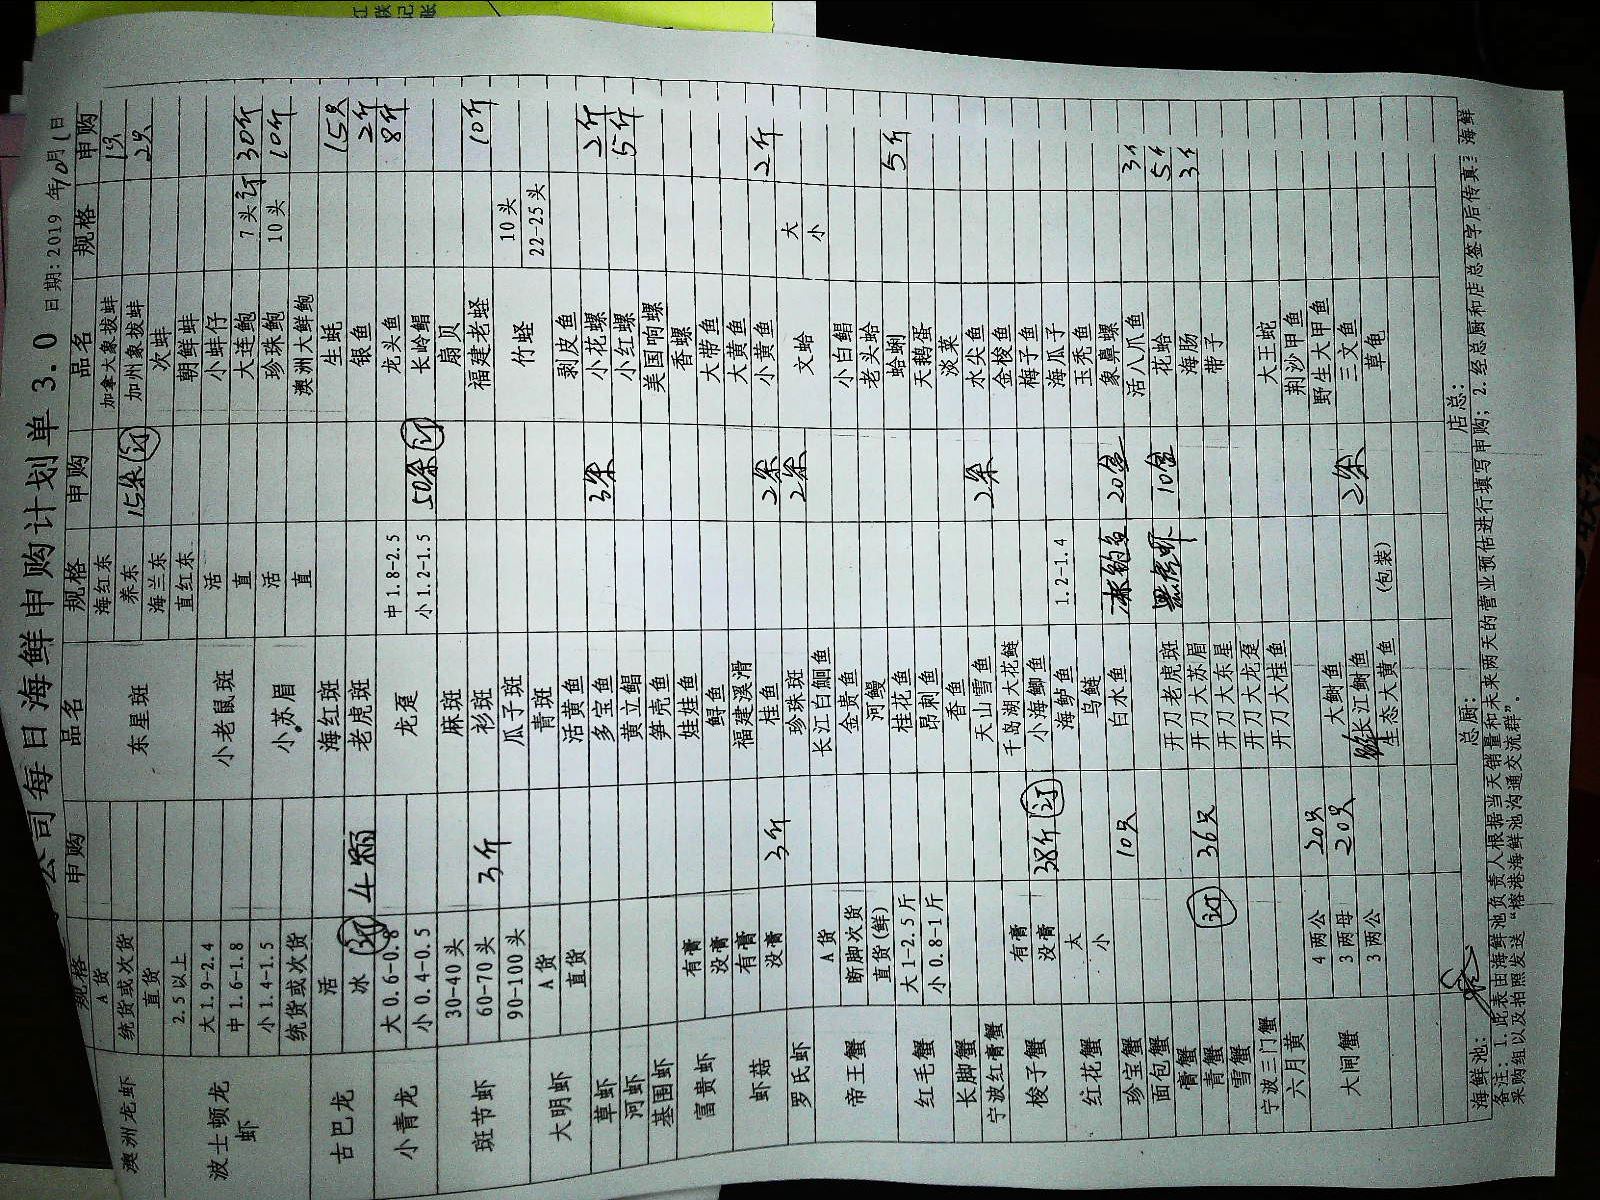 公司每日海鲜申购计划单3.0 日期:2019年10月1日
规格 申购 品名 规格 申购 品名 规格 申购
A货 海红东 加拿大象拔蚌 1只
澳洲龙虾 统货或次货 东星斑 养东 15条 订 加州象拔蚌 2只
直货 海兰东 次蚌
2.5以上 直红东 朝鲜蚌
波士顿龙虾 大1.9-2.4 小老鼠斑 活 小蚌仔
中1.6-1.8 直 大连鲍 7头 订 30斤
小1.4-1.5 小苏眉 活 珍珠鲍 10头 10斤
统货或次货 直 澳洲大鲜鲍
古巴龙 活 海红斑 生蚝 15只
冰 订 4颗 老虎斑 银鱼 2斤
小青龙 大0.6-0.8 龙趸 中1.8-2.5 龙头鱼 8斤
小0.4-0.5 小1.2-1.5 50条 订 长岭鲳
斑节虾 30-40头 麻斑 扇贝
60-70头 3斤 杉斑 福建老蛏 10斤
90-100头 瓜子斑 竹蛏 10头
大明虾 A货 青斑 22-25头
直货 活黄鱼 剥皮鱼
草虾 多宝鱼 3条 小花螺 2斤
河虾 黄立鲳 小红螺 5斤
基围虾 笋壳鱼 美国响螺
富贵虾 有膏 娃娃鱼 香螺
没膏 鲟鱼 大带鱼
虾菇 有膏 福建溪滑 大黄鱼
没膏 3斤 桂鱼 2条 小黄鱼 2斤
罗氏虾 珍珠斑 2条 文蛤 大
帝王蟹 A货 长江白鮰鱼 小
断脚次货 金贵鱼 小白鲳
直货(鲜) 河鳗 老头蛤
红毛蟹 大1-2.5斤 桂花鱼 蛤蜊 5斤
小0.8-1斤 昂刺鱼 天鹅蛋
长脚蟹 香鱼 淡菜
宁波红膏蟹 天山雪鱼 2条 水尖鱼
梭子蟹 有膏 千岛湖大花鲢 金梭鱼
没膏 38斤 订 小海鲫鱼 梅子鱼
红花蟹 大 海鲈鱼 1.2-1.4 海瓜子
小 乌鲢 玉秃鱼
珍宝蟹 10只 白水鱼 冰鲍鱼 20盒 象鼻螺
面包蟹 活八爪鱼 3斤
膏蟹 开刀老虎斑 黑虎虾 10盒 花蛤 5斤
青蟹 订 36只 开刀大苏眉 海肠 3斤
雪蟹 开刀大东星 带子
宁波三门蟹 开刀大龙趸
六月黄 开刀大桂鱼 大王蛇
大闸蟹 4两公 20只 荆沙甲鱼
3两母 20只 大鲥鱼 野生大甲鱼
3两公 长江鲥鱼 2条 三文鱼
生态大黄鱼 (包装) 草龟
海鲜池: 总厨: 店总:
备注:1.此表由海鲜池负责人根据当天销量和未来两天的营业预估进行填写申购;2.经总厨和店总签字后传真至海鲜
采购组以及拍照发送“榕港海鲜池沟通交流群”。